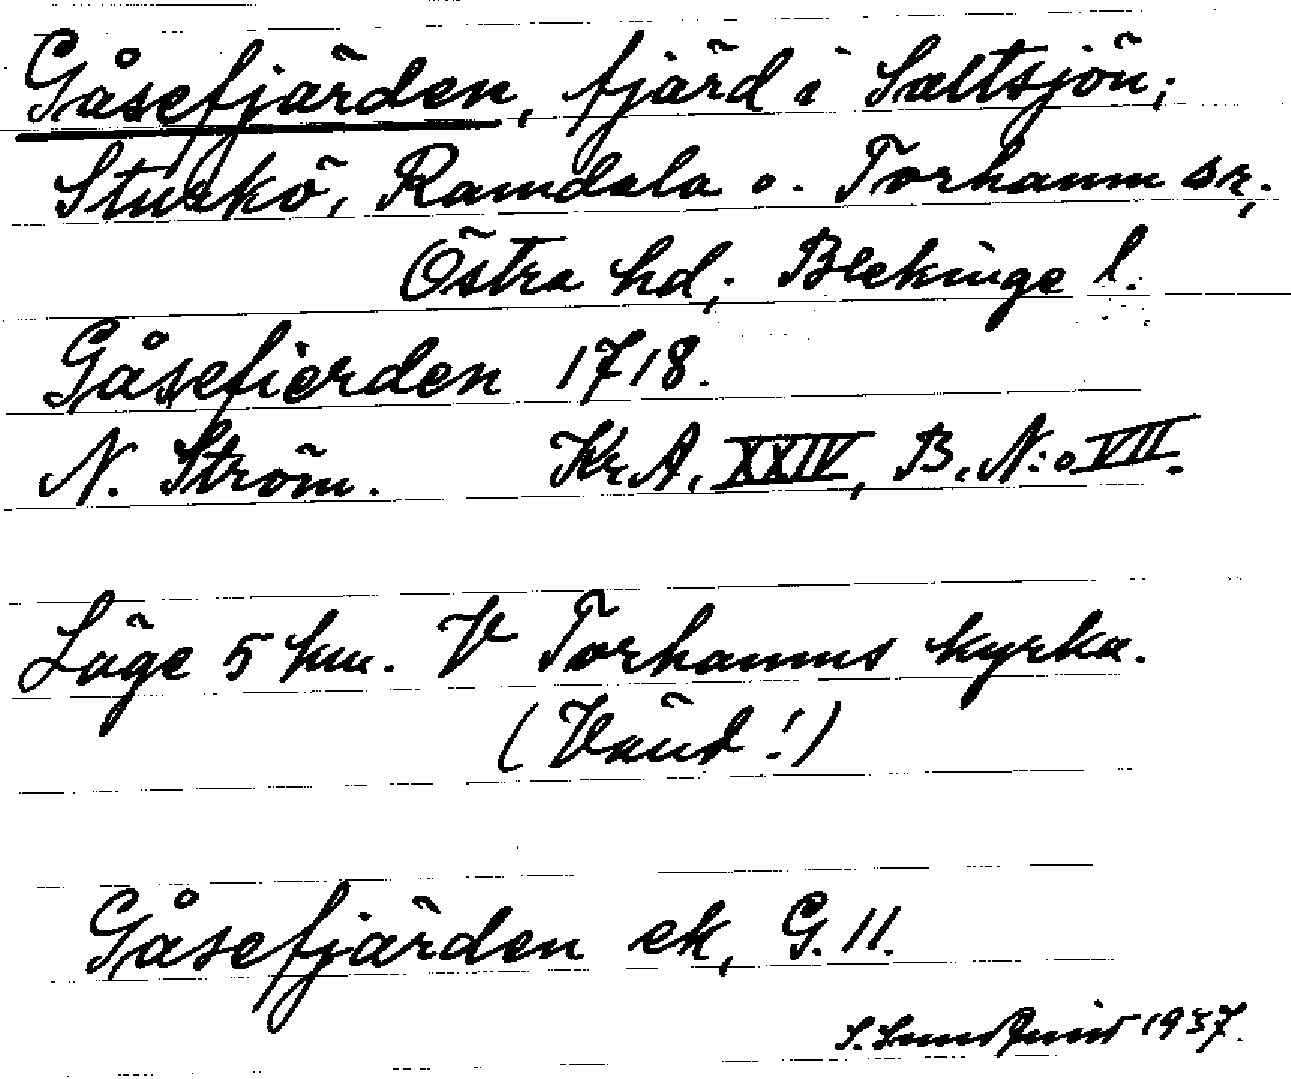 Gåsefjärden, fjärd i Saltsjön;
Sturkö, Ramdala o. Torhamn sr,
Östra hd; Blekinge l.
Gåsefierden 1718.
N. Ström. Kr.A. XXIV, B. N:o VII.
Läge 5 km. V Torhamns kyrka.
(Vänd!)
Gåsefjärden ek, G. 11.
S. Sundquist 1937.